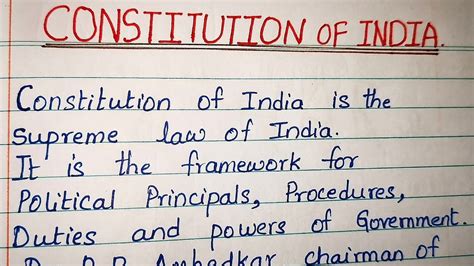 CONSTITUTION OF INDIA.
Constitution of India is the
Supreme law of India.
It is the framework for
Political Principals, Procedures,
Duties and powers of Government.
Ambedkar chairman of